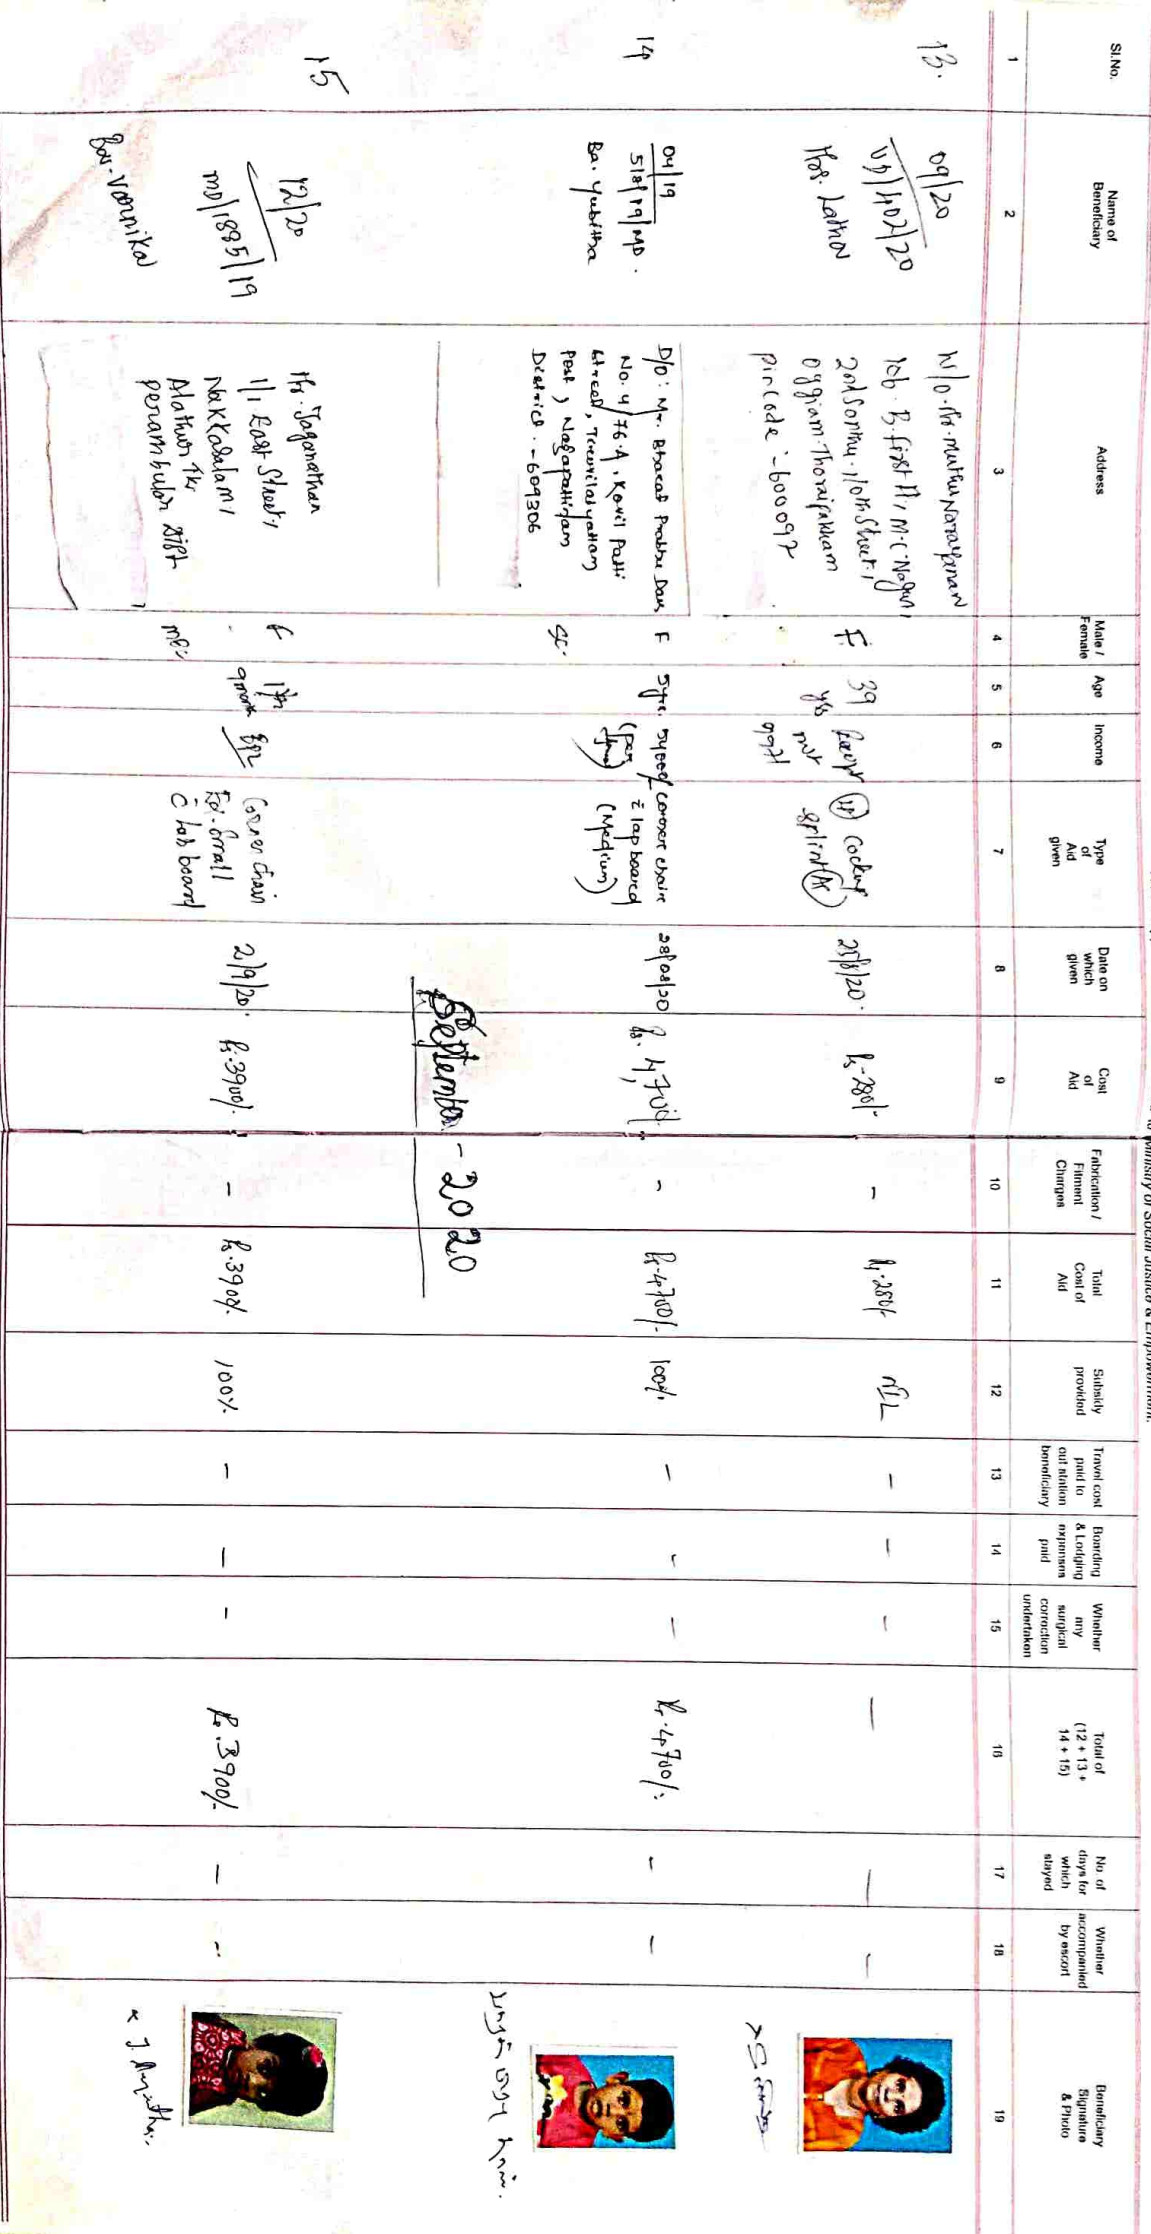 Ministry of Social Justice & Empowerment.
Sl.No.
Name of
Beneficiary
Address
Male /
Female
Age
Income
Type
of
Aid
given
Date on
which
given
Cost
of
Aid
Fabrication /
Fitment
Charges
Total
Cost of
Aid
Subsidy
provided
Travel cost
paid to
out station
beneficiary
Boarding
& Lodging
expenses
paid
Whether
any
surgical
correction
undertaken
Total of
(12 + 13 +
14 + 15)
No. of
days for
which
stayed
Whether
accompanied
by escort
Beneficiary
Signature
& Photo
1
2
3
4
5
6
7
8
9
10
11
12
13
14
15
16
17
18
19
13.
09/20
UD/402/20
Mrs. Latha
W/o. Mr. Muthu Narayanan
10b. B. first fl, M.C. Nagar,
2nd 10th Street,
Oggiam Thoraipakkam
Pincode - 600097
F.
39
yrs
Receipt
not
Cockup
splint
25/8/20.
Rs-280/-
-
Rs.280/-
NIL
-
-
-
-
-
-
14
04/19
518/19/MD.
Ba. Yubitha
D/O: Mr. Bharat Prabhu Das
No. 4/76 A, Kovil Patti
Street,
Post, Nagapattinam
District. - 609306
F
SC.
5yrs.
54000/
(per
Corner chair
c̄ lap board
(Medium)
28/08/20
Rs. 4,700/-
-
Rs.4700/-
100%
-
-
-
Rs.4700/-
-
-
September - 2020
15
12/20
MD/1885/19
Bar. Varnika
Mr. Jaganathan
1/1 East Street,
Nakkasalam,
Alathur Tk,
Perambular Dist
F
MBC
1 yr
9 month
BPL
Corner Chair
for Small
c̄ lap board
2/9/20.
Rs.3900/-
-
Rs.3900/-
100%
-
-
-
Rs.3900/-
-
-